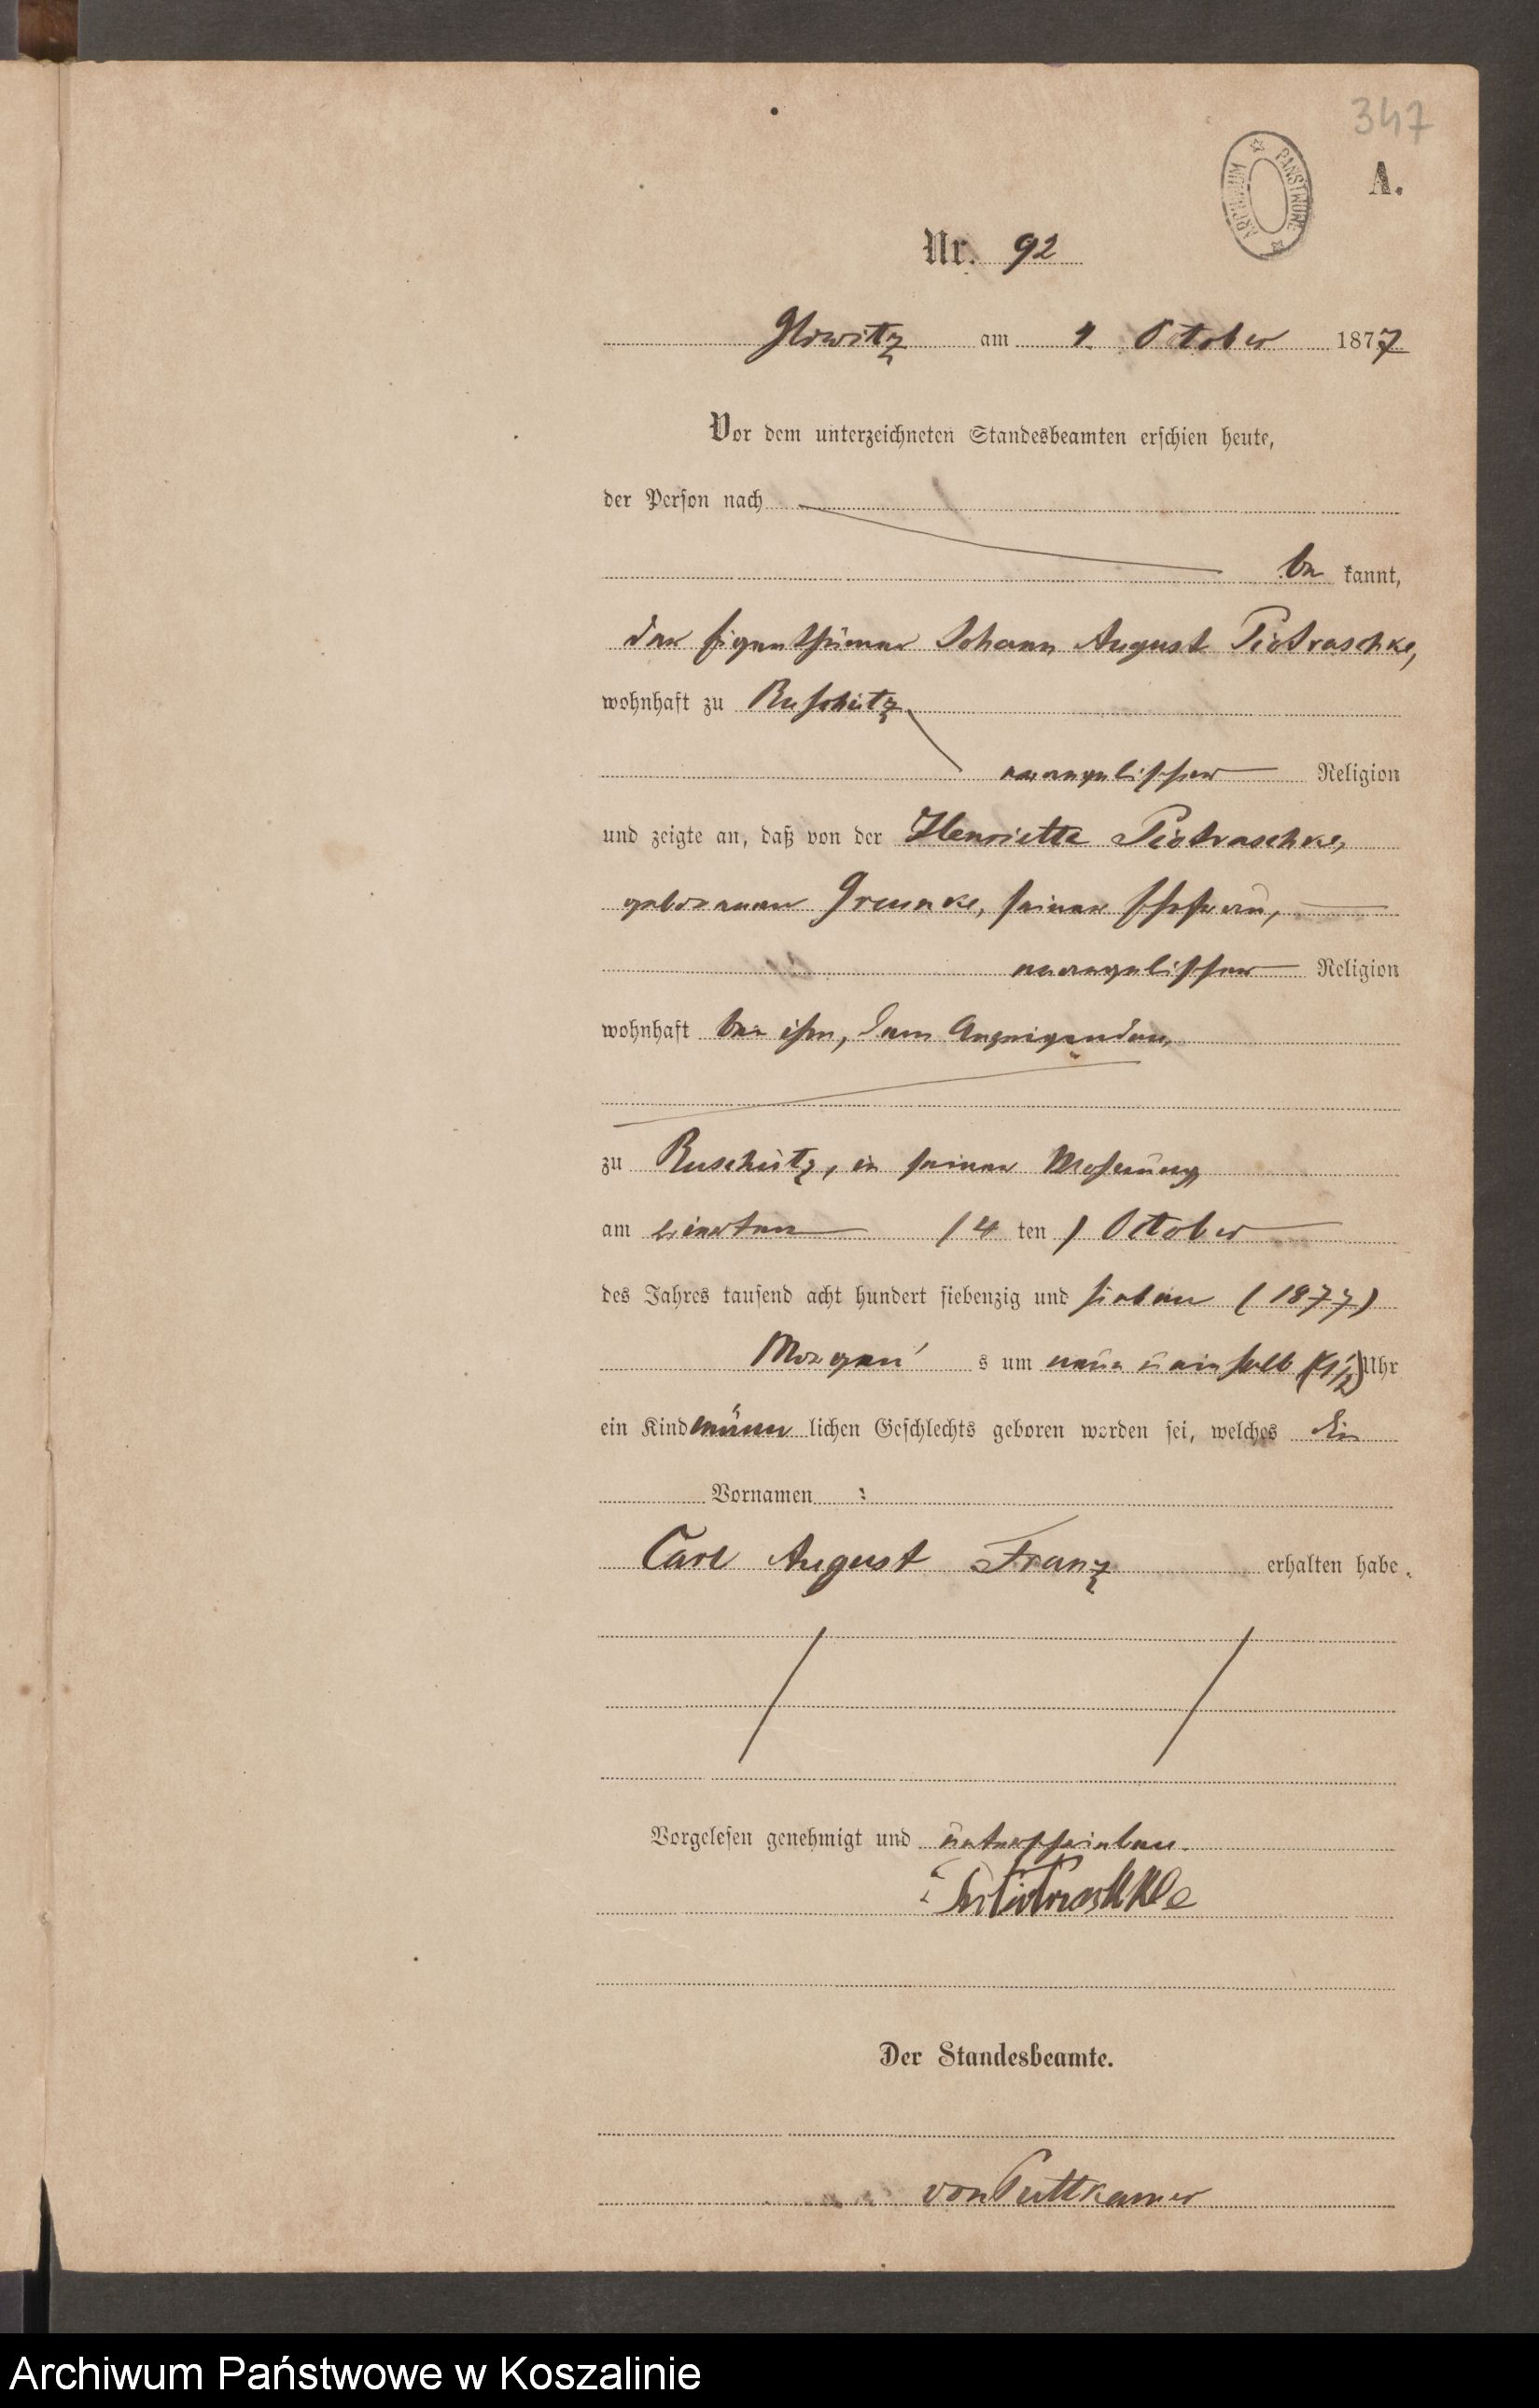 347
A.
ARCHIWUM PAŃSTWOWE
Nr. 92
Glowitz am October 1877
Vor dem unterzeichneten Standesbeamten erschien heute,
der Person nach
be kannt,
der Eigenthümer Johann August Piotraschke,
wohnhaft zu Ruschütz
evangelischer Religion
und zeigte an, daß von der Henriette Piotraschke,
geborenen Greunke, seiner Ehefrau,
evangelischer Religion
wohnhaft bei ihm, dem Anzeigenden,
zu Ruschütz, in seiner Wohnung
am vierten (4 ten) October
des Jahres tausend acht hundert siebenzig und sieben (1877)
Morgen s um Uhr
ein Kind männ lichen Geschlechts geboren worden sei, welches die
Vornamen :
Carl August Franz erhalten habe.
Vorgelesen genehmigt und unterschrieben.
Piotraschke
Der Standesbeamte.
von Puttkamer
Archiwum Państwowe w Koszalinie